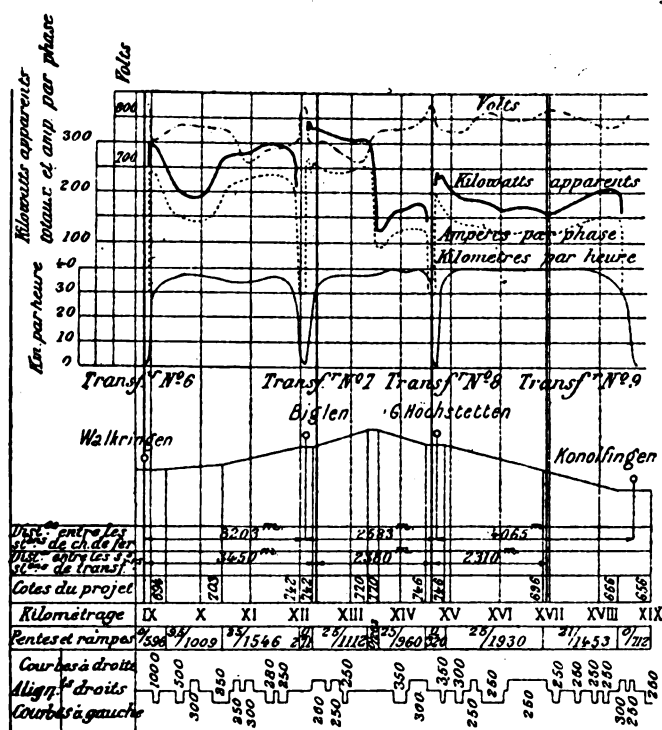 Kilowatts apparents
totaux et amp. par phase
Volts
800
700
300
200
100
Volts
Kilowatts apparents
Ampères par phase
Kilomètres par heure
Km. par heure
40
30
20
10
0
Transf.r Nº6 Transf.r Nº7 Transf.r Nº8 Transf.r Nº9
Walkringen
Biglen
G. Höchstetten
Konolfingen
Dist.ces entre les
st.ons de ch. de fer
3203 m. 2683 m. 4065 m.
Dist.ces entre les s.s
st.ons de transf.rs
3450 m. 2380 m. 2310 m.
Cotes du projet 694 703 742 742 770 770 746 746 696 666 656
Kilométrage IX X XI XII XIII XIV XV XVI XVII XVIII XIX
Pentes et rampes 0/598 /1009 25/1546 25/1112 25/960 25/1930 21/1453 0/712
Courbes à droite
Align.ts droits
Courbes à gauche
1000 500 850 280 250 350 350 300 250 250 250 260
300 250 300 260 250 300 250 260 260 300 250